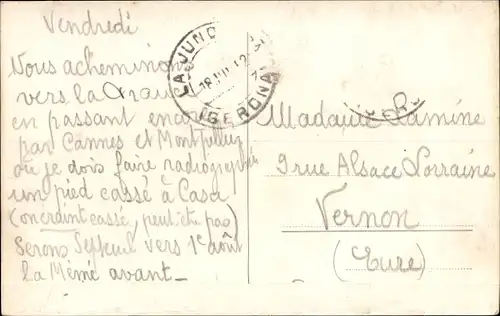 Vendredi
Nous acheminons
vers la France
en passant encore
par Cannes et Montpellier
où je dois faire radiographier
un pied cassé à Casa
(on craint cassé, peut-être pas)
Serons Septeuil vers 1e août
la Mémé avant_
LA JUNQ
(GERONA)
Madame Lamine
9 rue Alsace Lorraine
Vernon
(Eure)